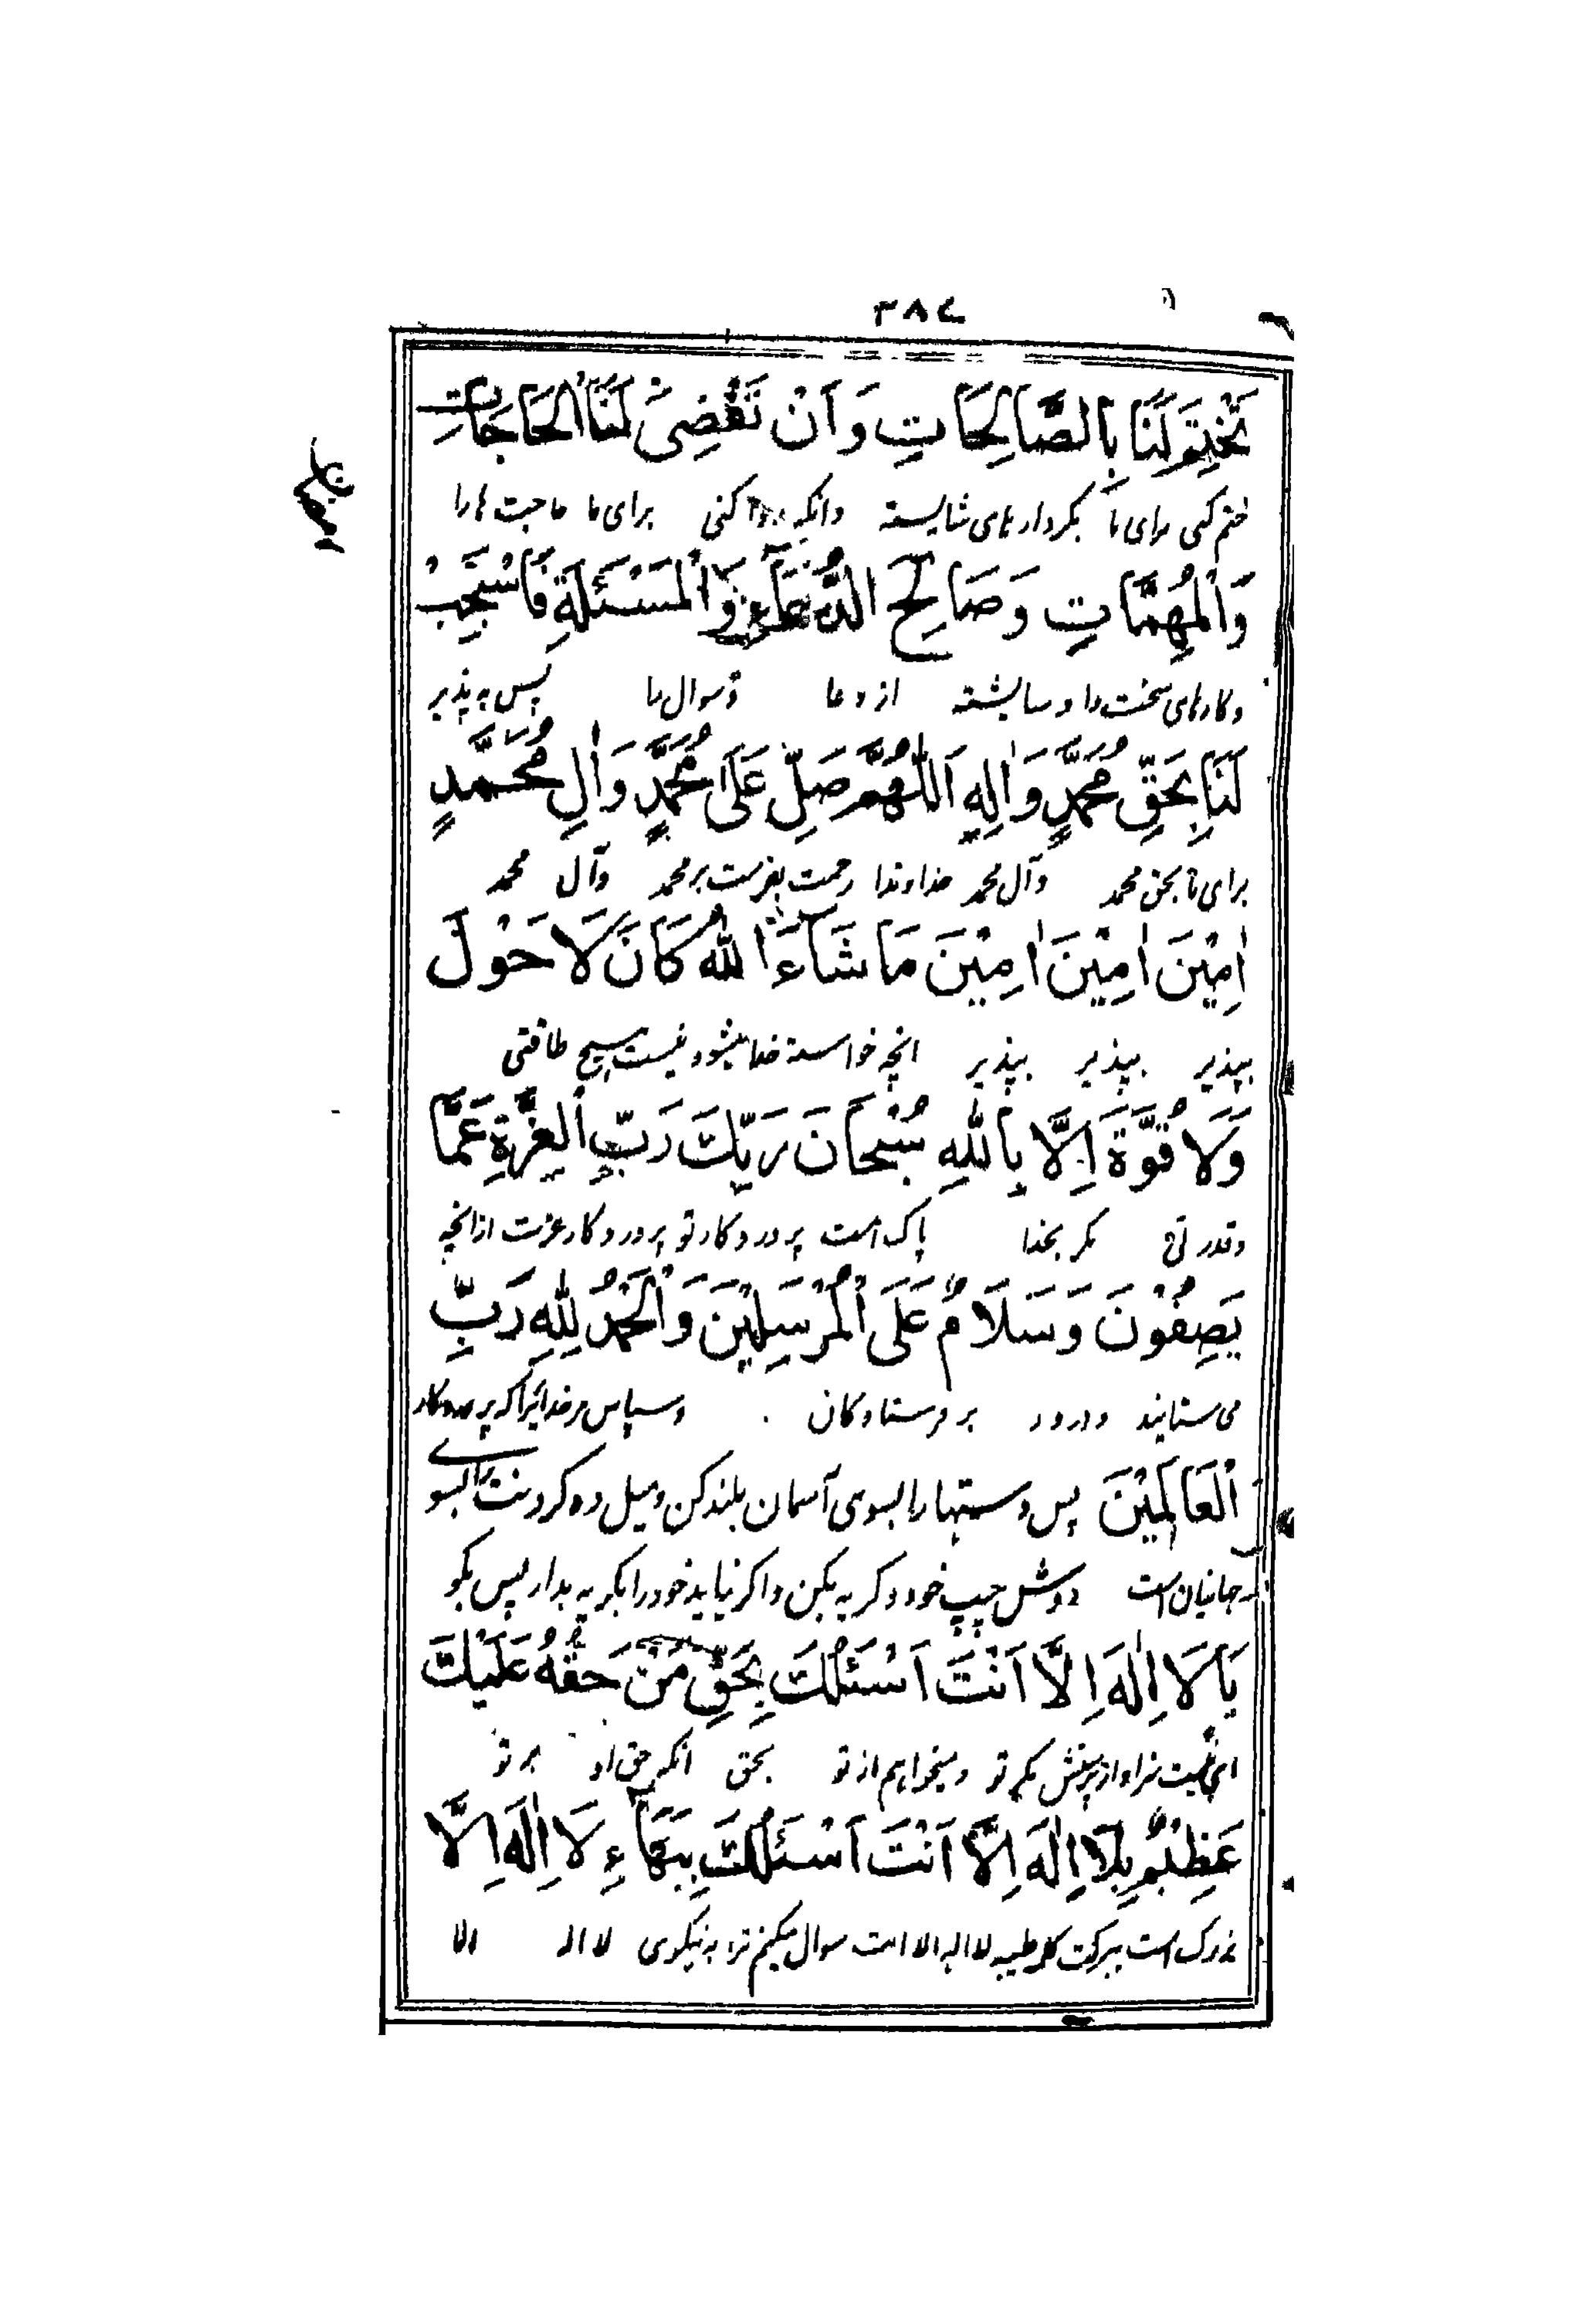 ۳۸۷
تَخْتِمَ لَنَا بِالصَّالِحَاتِ وَاَنْ تَقْضِیَ لَنَا الْحَاجَاتِ
ختم کنی برای ما بکردارهای شایسته وانکه روا کنی برای ما حاجت هارا
وَالْمُهِمَّاتِ وَصَالِحَ الدُّعَاءِ وَالْمَسْئَلَةِ فَاسْتَجِبْ
وکارهای سخت را و شایسته از دعا و سوال ما پس به پذیر
لَنَا بِحَقِّ مُحَمَّدٍ وَاٰلِهِ اَللّٰهُمَّ صَلِّ عَلَی مُحَمَّدٍ وَاٰلِ مُحَمَّدٍ
برای ما بحق محمد وآل محمد خداوندا رحمت بفرست بر محمد وآل محمد
اٰمِیْنَ اٰمِیْنَ اٰمِیْنَ مَا شَاءَ اللهُ کَانَ لَا حَوْلَ
بپذیر بپذیر بپذیر انچه خواسته خدا میشود نیست هیچ طاقتی
وَلَا قُوَّةَ اِلَّا بِاللهِ سُبْحَانَ رَبِّكَ رَبِّ الْعِزَّةِ عَمَّا
وقدرتی مکر بخدا پاک است پروردکار تو پروردکار عزت ازانچه
یَصِفُوْنَ وَسَلَامٌ عَلَی الْمُرْسَلِیْنَ وَالْحَمْدُ لِلّٰهِ رَبِّ
می ستایند ودرود بر فرستادکان وسپاس مر خدایرا که پروردکار
الْعَالَمِیْنَ پس دستها را بسوی آسمان بلند کن ومیل ده کردنت را بسوے
جهانیان است دوش چپ خود وکریه بکن واکر نیاید خود را بکریه بدار پس بکو
یَا لَا اِلٰهَ اِلَّا اَنْتَ اَسْئَلُكَ بِحَقِّ مَنْ حَقُّهُ عَلَیْكَ
ای نیست سزاوار پرستش مکر تو ومیخواهم از تو بحق انکه حق او بر تو
عَظِیْمٌ بِلَا اِلٰهَ اِلَّا اَنْتَ اَسْئَلُكَ بِبَهَاءِ لَا اِلٰهَ اِلَّا
بزرک است ببرکت کلمه طیبه لا اله الا انت سوال میکنم ترا به نیکوی لا اله الا